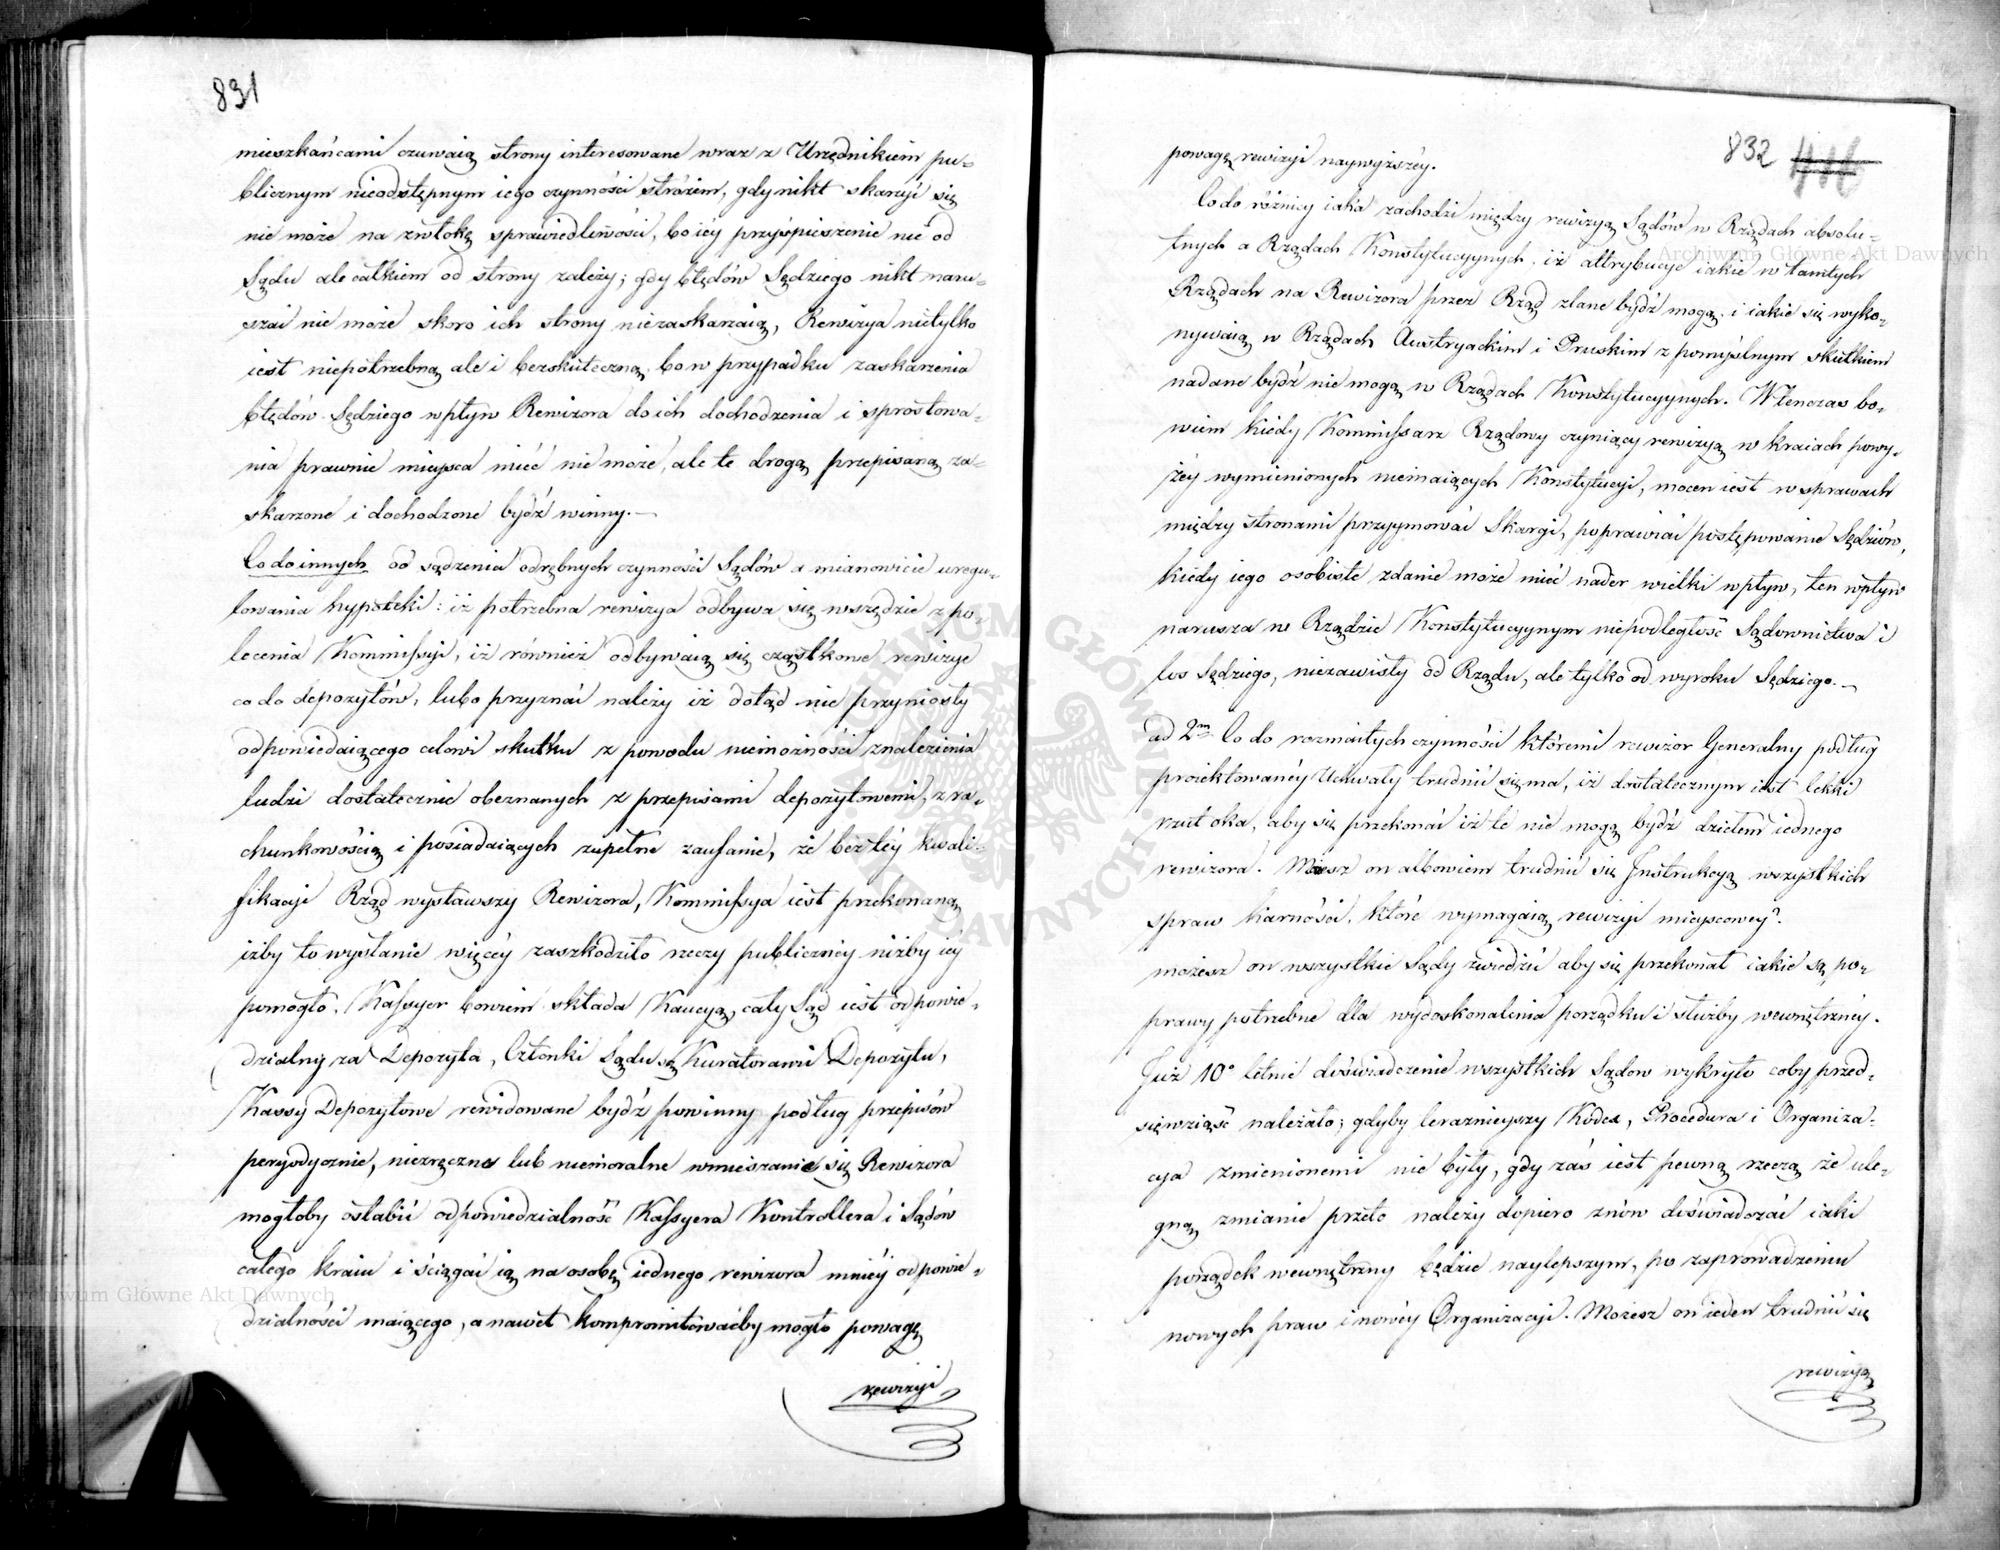 831
mieszkańcami czuwaią strony interesowane wraz z Urzędnikiem pu-
blicznym nieodstępnym iego czynności stróżem, gdy nikt skarzyć się
nie może na zwłokę sprawiedliwości, bo iéy przyśpieszenie nie od
Sądu ale całkiem od strony zależy; gdy błędów Sędziego nikt naru-
szać nie może skoro ich strony niezaskarzaią, Rewizya nietylko
iest niepotrzebną ale i bezskuteczną, bo w przypadku zaskarzenia
błędów Sędziego wpływ Rewizora do ich dochodzenia i sprostowa-
nia prawnie mieysca mieć nie może, ale te drogą przepisaną za-
skarzone i dochodzone bydź winny.—
Co do innych od sądzenia odrębnych czynności Sądów a mianowicie uregu-
lowania hypoteki: iż potrzebna rewizya odbywa się wszędzie z po-
lecenia Kommissyi, iż również odbywaią się cząstkowe rewizye
co do depozytów, lubo przyznać należy iż dotąd nie przyniosły
odpowiedaiącego celowi skutku z powodu niemożności znalezienia
ludzi dostatecznie obeznanych z przepisami depozytowemi, z ra-
chunkowością i posiadaiących zupełne zaufanie, że bez téy kwali-
fikacyi Rząd wysławszy Rewizora, Kommissya iest przekonaną
iżby to wysłanie więcéy zaszkodziło rzeczy publicznéy niżby iéy
pomogło. Kassyer bowiem składa Kaucyą, cały Sąd iest odpowie-
dzialny za Depozyta, Członki Sądu są Kuratorami Depozytu,
Kassy Depozytowe rewidowane bydź powinny podług przepisów
peryodycznie, niezręczne lub niemoralne wmieszanie się Rewizora
mogłoby osłabić odpowiedzialność Kassyera Kontrollera i Sądów
całego kraiu i ściągać ią na osobę iednego rewizora mniéy odpowie-
dzialności maiącego, a nawet kompromitowaćby mogło powagę
rewizyi
832
powagę rewizyi naywyższéy.
Co do różnicy iaka zachodzi między rewizyą Sądów w Rządach absolu-
tnych a Rządach Konstytucyynych, iż attrybucye iakie w tamtych
Rządach na Rewizora przez Rząd zlane bydź mogą, i iakie się wyko-
nywaią w Rządach Austryackim i Pruskim z pomyślnym skutkiem
nadane bydź nie mogą w Rządach Konstytucyynych. Wtenczas bo-
wiem kiedy Kommissarz Rządowy czyniący rewizyą w kraiach powy-
żéy wymienionych niemaiących Konstytucyi, mocen iest w sprawach
między stronami przyymować Skargi, poprawiać postępowanie Sędziów,
kiedy iego osobiste zdanie może mieć nader wielki wpływ, ten wpływ
narusza w Rządzie Konstytucyynym niepodległość Sądownictwa i
los Sędziego, niezawisły od Rządu, ale tylko od wyroku Sędziego.—
ad 2m Co do rozmaitych czynności któremi rewizor Generalny podług
proiektowanéy Uchwały trudnić się ma, iż dostatecznym iest lekki
rzut oka, aby się przekonać iż te nie mogą bydź dziełem iednego
rewizora. Możesz on albowiem trudnić się Instrukcyą wszystkich
spraw karności, które wymagaią rewizyi mieyscowey?.
możesz on wszystkie Sądy zwiedzić aby się przekonał iakie są po-
prawy potrzebne dla wydoskonalenia porządku i służby wewnętrznéy.
Już 10o letnie doświadczenie wszystkich Sądów wykryło coby przed-
sięwziąść należało; gdyby teraznieyszy Kodex, Procedura i Organiza-
cya zmienionemi nie były, gdy zaś iest pewną rzeczą że ule-
gną zmianie przeto należy dopiero znów doświadczać iaki
porządek wewnętrzny będzie naylepszym, po zaprowadzeniu
nowych praw i nowéy Organizacyi. Możesz on ieden trudnić się
rewizyą
Archiwum Główne Akt Dawnych
Archiwum Główne Akt Dawnych
ARCHIWUM GŁÓWNE AKT DAWNYCH